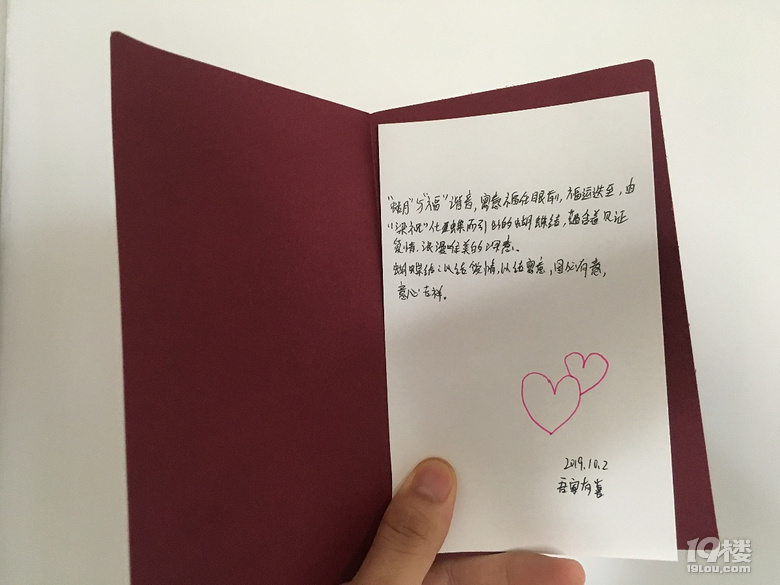 "蝴"与"福"谐音，寓意福在眼前，福运迭至，由
"梁祝"化蝶而引出的蝴蝶结，蕴含着见证
爱情、浪漫唯美的寓意。
蝴蝶结：以结饰情，以结寓意，图必有意，
意必吉祥。
2019.10.2
吾家有喜
19楼
19lou.com